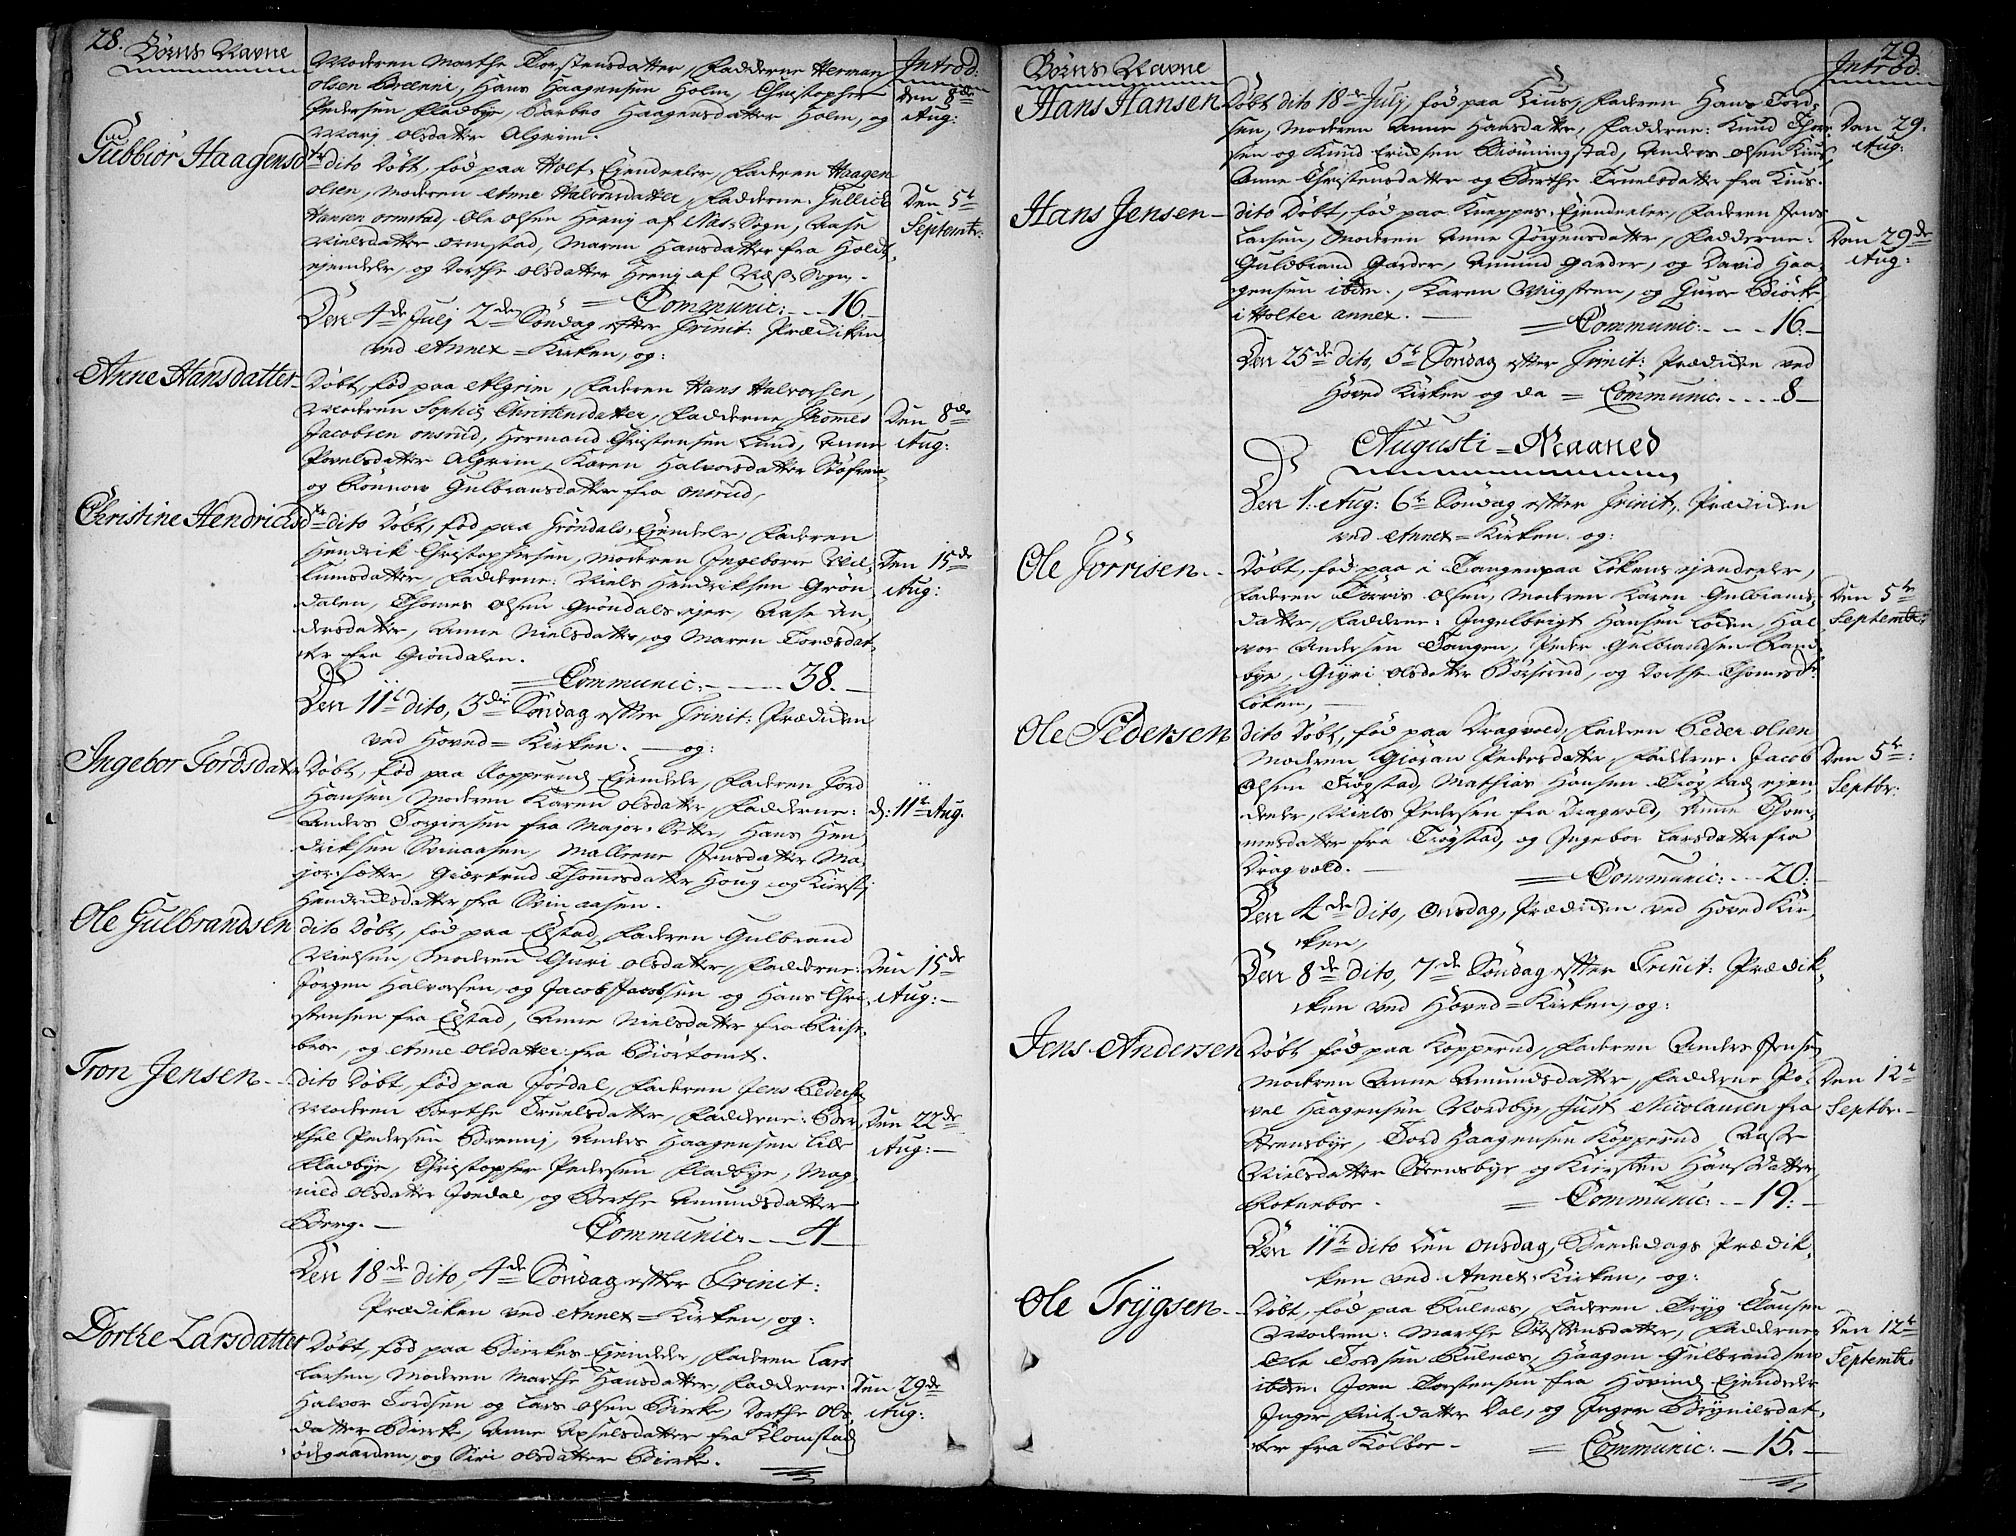 28. Börns Navne
Introd:
Moderen Marthe Torstensdatter, Fadderne Herman
olsen Brenni, Hans Haagensen Holm, Christopher
Pedersen Fladbye, Barbro Haagensdatter Holm, og
Marj olsdatter Algrim.
den 8de
Aug:
Gubbiör Haagensd
tr dito Döbt, fød paa Holt Ejendeeler, Faderen Haagen
olsen, Moderen Anne Halvorsdatter, Fadderne Gullick
Hansen ormstad, Ole olsen Herrej af Næs Sogn, Aase
Nielsdatter ormstad, Maren Hansdatter fra Holt
ejendeler, og Dorthe olsdatter Herrej af Næs Sogn.
Den 5te
Septembr:
Communic: - - 16.
Den 4de Julj 2de Söndag efter Trinit: Prædiken
ved Annex=Kirken, og:
Anne Hansdatter
Döbt, fød paa Algrim, Faderen Hans Halvorsen,
Moderen Sophia Christensdatter, Fadderne Thomes
Jacobsen onsrud, Hermand Christensen Lund, Anne
Povelsdatter Algrim, Karen Halvorsdatter
og Rönnow Gulbransdatter fra onsrud,
Den 8de
Aug:
Christine Hendricsd
tr dito Döbt, fød paa Gröndals Ejendele, Faderen
Hendrik Christophersen, Moderen Ingeborr
lumsdatter, Fadderne: Niels Hendriksen Grön
dalen, Thomes olsen Gröndals ejer, Aase An
dersdatter, Anne Nielsdatter, og Maren Tordsdat
ter fra Gröndalen.
Den 15de
Aug:
Communic. - - 38.
Den 11te dito, 3die Söndag efter Trinit: Prædiken
ved Hoved=Kirken. - og:
Ingebor Tordsdatr
Döbt, fød paa Kopperud Ejendele, Faderen Tord
Hansen, Moderen Karen olsdatter, Fadderne:
Anders Torgiersen fra Major Sætter, Hans Hen
driksen Svinaasen, Mallene Jensdatter Ma
jor sætter, Giertrud Thomesdatter Houg og Kirstj
Hendricksdatter fra Svinaasen.
d: 11te Aug.
Ole Gulbrandsen
dito Döbt, fød paa Elstad, Faderen Gulbrand
Nielsen, Moderen Guri olsdatter, Fadderne:
Jörgen Halvorsen, og Jacob Jacobsen og Hans Chri
stensen fra Elstad, Anne Nielsdatter fra Riise
broe, og Anne olsdatter fra Biörtomt.
Den 15de
Aug: -
Tron Jensen
dito Döbt, fød paa Jördal, Faderen Jens Peders:
Moderen Berthe Truelsdatter, Fadderne: Ber
thel Pedersen Brennj, Anders Haagensen lille
Fladbye, Christopher Pedersen Fladbye, Mag
nild olsdatter Jordal, og Berthe Amundsdatter
Berg. -
Den 22de
Aug: -
Communic. - - 4
Den 18de dito, 4de Söndag efter Trinit:
Prædiken ved Annex=Kirken, og:
Dorthe Larsdatter
Döbt, fød paa Bierkes Ejendele, Faderen Lars
Larsen, Moderen Marthe Hansdatter, Fadderne:
Halvor Tordsen og Lars olsen Bierke, Dorthe ols
datter Bierke, Anne Apselsdatter fra Klomstad
ödegaarden, og Siri olsdatter Bierke.
Den 29de
Aug:
29
Börns Navne
Introd:
Hans Hansen
Döbt dito 18de Julj, fød paa Kius, Faderen Hans Tord
sen, Moderen Anne Hansdatter, Fadderne: Knud Thor
sen og Knud Ericksen Biönningstad, Anders olsen Kius
Anne Christensdatter og Berthe Truelsdatter fra Kius.
Den 29.
Aug:
Hans Jensen
dito Döbt, fød paa Kneppes Ejendeler, Faderen Jens
Larsen, Moderen Anne Jörgensdatter, Fadderne:
Guldbrand Garder, Amund Garder, og David Haa
gensen ibdm., Karen Myhstren, og Guroe Biörke
i Holter annex. -
Den 29de
Aug:
Communic. - - 16.
Den 25de dito, 5te Söndag efter Trinit: Prædiken ved
Hoved Kirken og da = Communic. - - 8
Augusti=Maaned
Den 1. Aug: 6te Söndag efter Trinit, Prædiken
ved Annex=Kirken. og:
Ole Jörrisen
Döbt, fød paa i Tangen paa Lökens ejendeeler,
Faderen Törris olsen, Moderen Karen Gulbrands
datter, Fadderne: Ingelbrigt Hansen Löken, Hal
vor Andersen Tangen, Peder Gulbrandsen Rand
bye, Giyri olsdatter Börsrud, og Dorthe Thomesd.
Löken, -
Den 5te
Septembr:
Ole Pedersen
dito Döbt, fød paa Dragvold, Faderen Peder olsen
Moderen Giöran Pedersdatter, Fadderne. Jacob
olsen Trögstad, Mathias Hansen Trögstad ejen
deeler, Niels Pedersen fra Dragvold, Anne Thom
mesdatter fra Trögstad, og Ingebor Larsdatter fra
Dragvold. -
Den 5te:
Septbr:
Communic: - - 20.
Den 4de dito, onsdag, Prædiken ved Hoved Kir
ken,
Den 8de dito, 7de Söndag efter Trinit: Prædik
ken ved Hoved=Kirken, og:
Jens Andersen
Döbt fød paa Kopperud, Faderen Anders Jensen
Moderen Anne Amundsdatter, Fadderne Po
vel Haagensen Nordbye, Just Nicolaisen fra
Arensbye, Tord Haagensen Kopperud, Aase
Nielsdatter Arensbye og Kiersten Hansdatter,
Rotneboe.
Den 12te
Septbr. -
Communic. - - 19. -
Den 11te dito den onsdag, Beededags Prædik
ken ved Annex Kirken, og:
Ole Trÿgsen
Döbt, fød paa Kulnæs, Faderen Tryg Clausen
Moderen: Marthe Torstensdatter, Fadderne
Ole Tordsen Kulnæs, Haagen Gulbrandsen
ibdm. Joen Torstensen fra Hovind Ejendeele
Inger datter Dal, og Inger Brynilsdat
ter fra Kolboe -
Den 12te
Septembr:
Communic. - 15. -